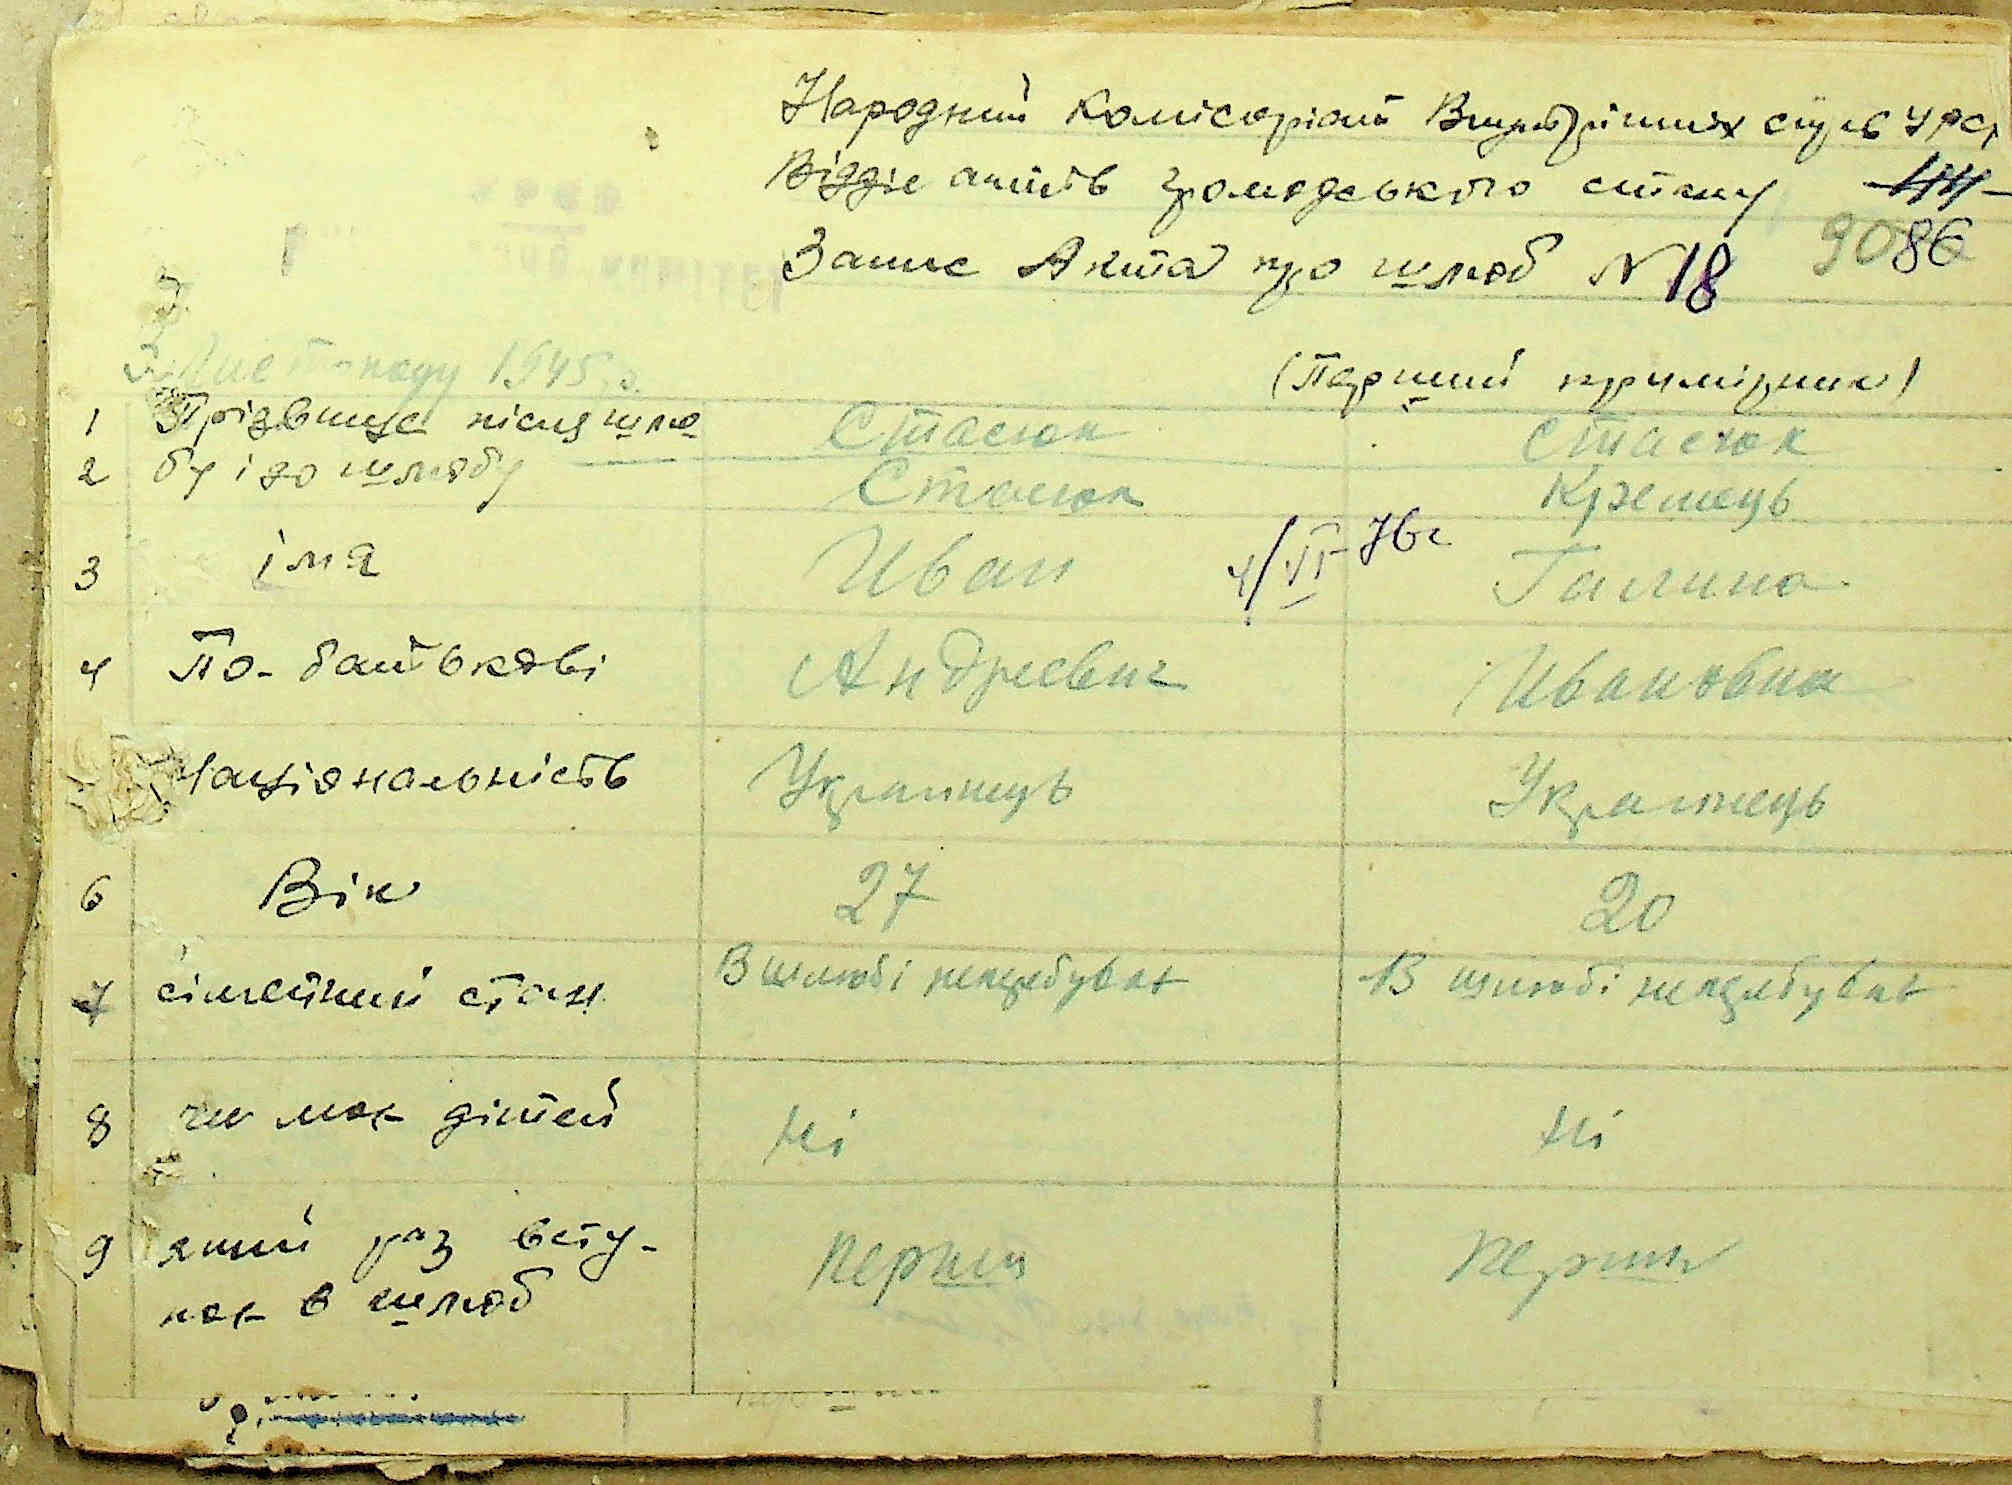 Народний Комісаріат Внутрішніх справ УРСР
Відділ актів громадського стану 44
Запис Акта про шлюб N 18 9086
Лист-паду 1945 р.
(Перший примірник)
1 Прізвище після шлю- Стасюк Стасюк
2 бу і до шлюбу Стасюк
3 імя Иван Галина
4/VI-76г
4 По-батькові Андреевич Ивановна
Національність Украинець Украинець
6 Вік 27 20
7 сімейний стан В шлюбі неперебував В шлюбі неперебував
8 чи має дітей Ні Ні
9 який раз всту- перший перший
пає в шлюб